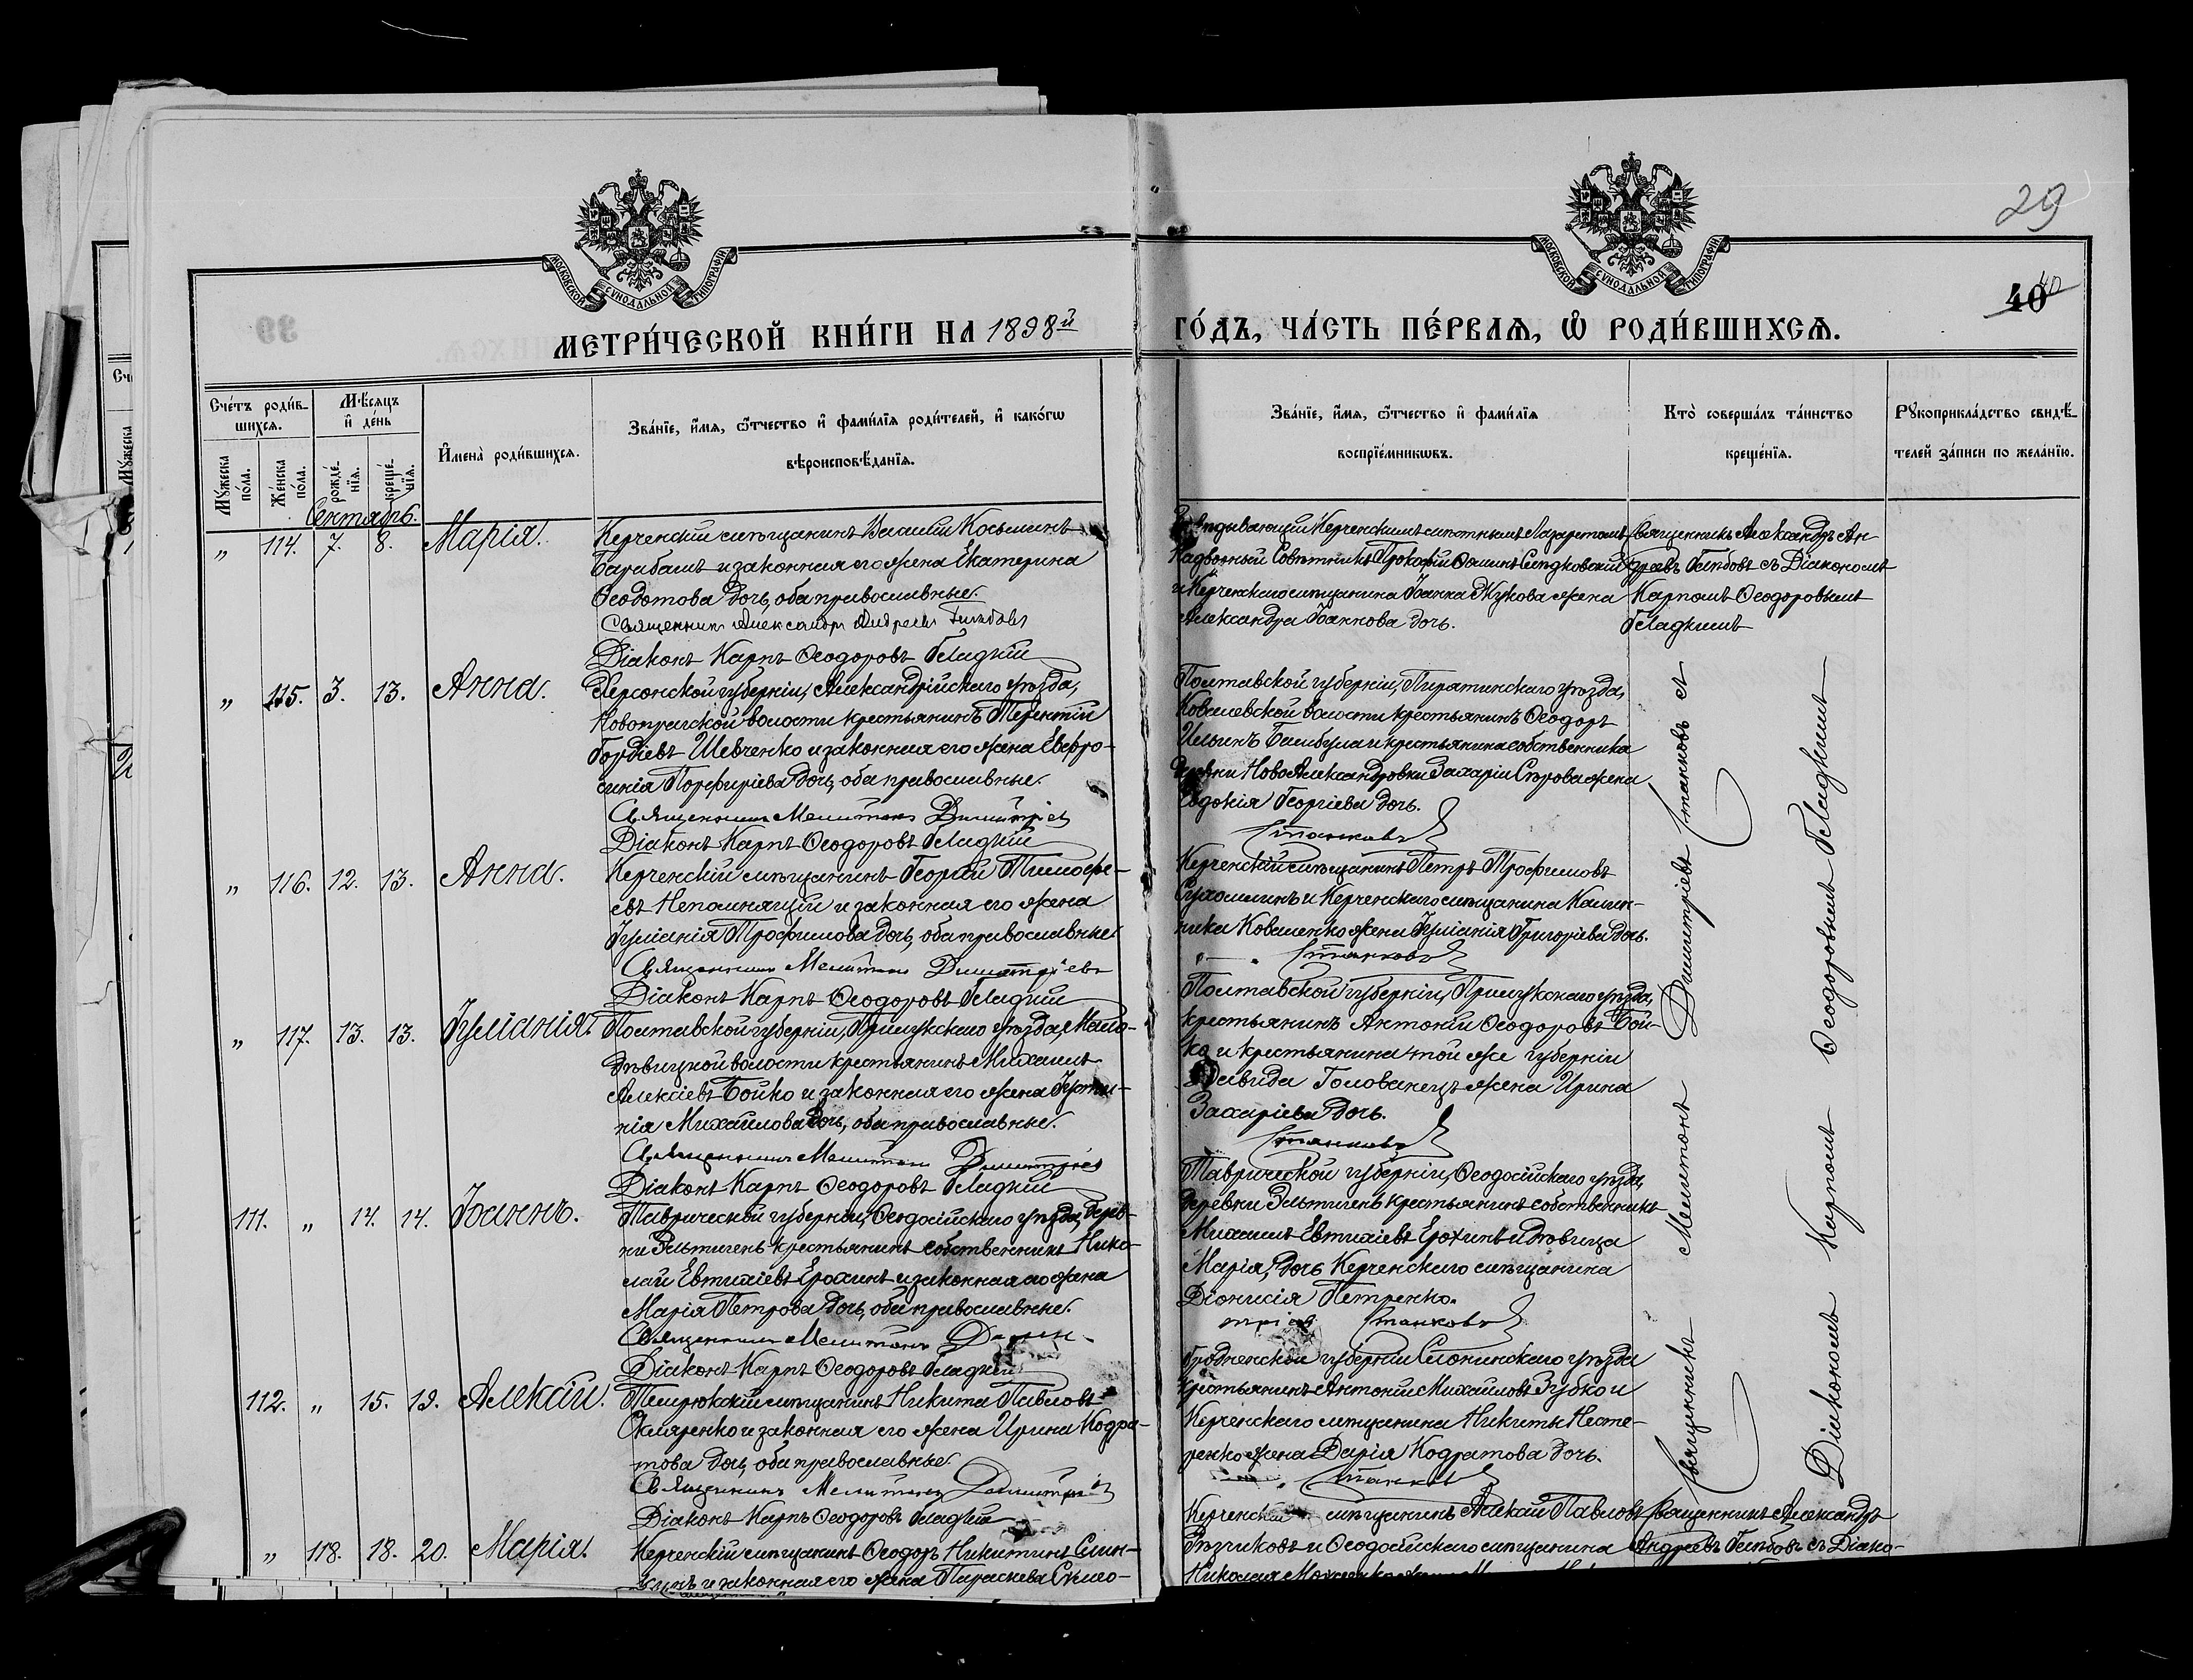 29
40
40
МОСКОВСКОЙ СѴНОДАЛЬНОЙ ТИПОГРАФІИ
МОСКОВСКОЙ СѴНОДАЛЬНОЙ ТИПОГРАФІИ
МЕТРИ́ЧЕСКОЙ КНИ́ГИ НА 1898й
ГО́ДЪ, ЧА́СТЬ ПЕ́РВАѦ, Ѿ РОДИ́ВШИХСѦ.
Сче́тъ роди́в-
шихсѧ.
Мꙋ́жеска по́ла.
Же́нска по́ла.
Мѣ́сѧцъ и҆ де́нь
рожде́нїѧ.
креще́нїѧ.
И҆мена̀ роди́вшихсѧ.
Зва́нїе, и҆́мѧ, ѻ҆́тчество и҆ фами́лїѧ роди́телей, и҆ како́гѡ
вѣроисповѣ́данїѧ.
Зва́нїе, и҆́мѧ, ѻ҆́тчество и҆ фами́лїѧ
воспрїе́мникѡвъ.
Кто̀ соверша́лъ та́инство
креще́нїѧ.
Рꙋкоприкла́дство свидѣ́-
телей за́писи по жела́нїю.
Сентябрь.
„ 114. 7. 8. Марія.
Керченскій мѣщанинъ Василій Косьминъ
Барабашъ и законная его жена Екатерина
Ѳеодотова дочь, оба православные.
Священникъ Александръ Андреевъ Глѣбовъ
Діаконъ Карпъ Ѳеодоровъ Гладкій
Завѣдывающій Керченскимъ Лазаретомъ
Надворный Совѣтникъ Прокофій
и Керченскаго мѣщанина Іоанна Жукова жена
Александра Іоаннова дочь.
Священникъ Александръ Ан-
дреевъ Глѣбовъ съ Діакономъ
Карпомъ Ѳеодоровымъ
Гладкимъ
„ 115. 3. 13. Анна.
Херсонской губерніи, Александрійскаго уѣзда,
Новопражской волости крестьянинъ Терентій
Гордіевъ Шевченко и законная его жена Евфро-
синія Порфиріева дочь, оба православные.
Священникъ Мелитонъ Димитріевъ
Діаконъ Карпъ Ѳеодоровъ Гладкій
Полтавской губерніи, Пирятинскаго уѣзда,
Ковалевской волости крестьянинъ Ѳеодоръ
Ильинъ и крестьянина собственника
деревни Ново Александровки Захарія Сѣрова жена
Евдокія Георгіева дочь.
Станковъ
„ 116. 12. 13. Анна.
Керченскій мѣщанинъ Георгій Тимоѳе-
евъ Непомнящій и законная его жена
Іуліанія Трофимова дочь, оба православные.
Священникъ Мелитонъ Димитріевъ
Діаконъ Карпъ Ѳеодоровъ Гладкій
Керченскій мѣщанинъ Петръ Трофимовъ
и Керченскаго мѣщанина Калин-
ника Коваленко жена Іуліанія Григоріева дочь.
Станковъ
„ 117. 13. 13. Іуліанія.
Полтавской губерніи, Прилукскаго уѣзда, Мало-
дѣвицкой волости крестьянинъ Михаилъ
Алексіевъ Бойко и законная его жена Іусти-
нія Михайлова дочь, оба православные.
Священникъ Мелитонъ Димитріевъ
Діаконъ Карпъ Ѳеодоровъ Гладкій
Полтавской губерніи, Прилукскаго уѣзда,
крестьянинъ Антоній Ѳеодоровъ Бой-
ко и крестьянина той же губерніи
Давида Голованецъ жена Ирина
Захаріева дочь.
Станковъ
111. „ 14. 14. Іоаннъ.
Таврической губерніи, Ѳеодосійскаго уѣзда, дерев-
ни Эльтигенъ крестьянинъ собственникъ Нико-
лай Евтихіевъ Ерохинъ и законная его жена
Марія Петрова дочь, оба православные.
Священникъ Мелитонъ Дими-
Діаконъ Карпъ Ѳеодоровъ Гладкій
Таврической губерніи, Ѳеодосійскаго уѣзда,
деревни Эльтигенъ крестьянинъ собственникъ
Михаилъ Евтихіевъ Ерохинъ и дѣвица
Марія, дочь Керченскаго мѣщанина
Діонисія Петренко.
тріевъ Станковъ
112. „ 15. 19. Алексій.
Темрюкскій мѣщанинъ Никита Павловъ
Скляренко и законная его жена Ирина Кодра-
това дочь, оба православные.
Священникъ Мелитонъ Димитріевъ
Діаконъ Карпъ Ѳеодоровъ Гладкій
Гродненской губерніи Слонимскаго уѣзда
крестьянинъ Антоній Михайловъ Зубко и
Керченскаго мѣщанина Никиты Несте-
ренко жена Дарія Кодратова дочь.
Станковъ
Священникъ Мелитонъ Димитріевъ Станковъ съ
Діакономъ Карпомъ Ѳеодоровымъ Гладкимъ
„ 118. 18. 20. Марія.
Керченскій мѣщанинъ Ѳеодоръ Никитинъ
и законная его жена Параскева
Керченскій мѣщанинъ Алексій Павловъ
и Ѳеодосійскаго мѣщанина
Николая
Священникъ Александръ
Андреевъ Глѣбовъ съ Діако-